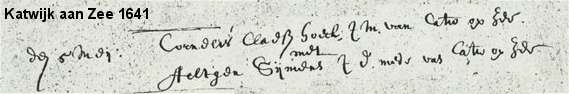 Katwijk aan Zee 1641
den 5 Meij: Corneles Claesz hoeck J m. van Catw op Zee.
met
Aeltgen Sijmens J d. mede van Catw op Zee